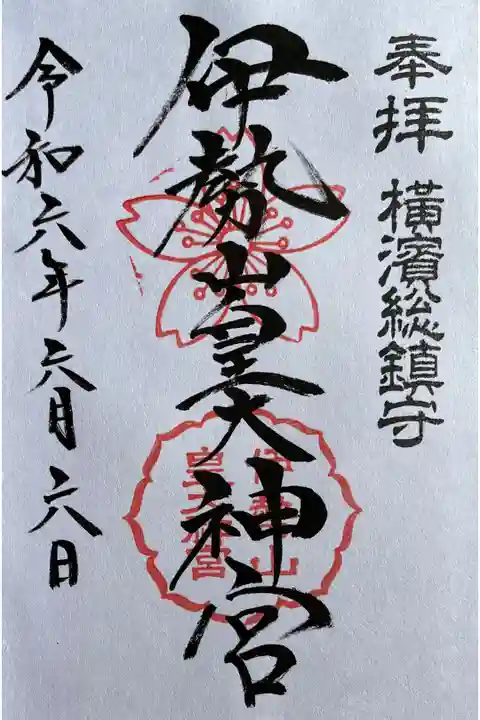 奉拝 横濱総鎮守
伊勢山皇大神宮
伊勢山
皇大神宮
令和六年六月六日